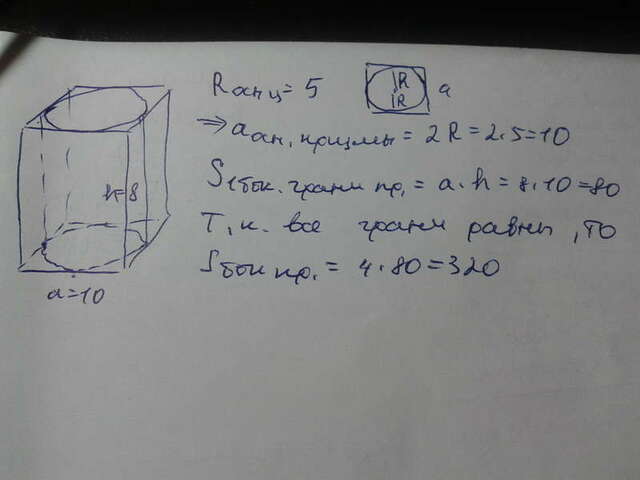 Rанц = 5
R
R
a
⇒ aан. призмы = 2R = 2.5=10
S1бок. грани пр. = a.h = 8.10=80
h=8
Т.к. все грани равны, то
Sбок пр. = 4.80=320
a=10